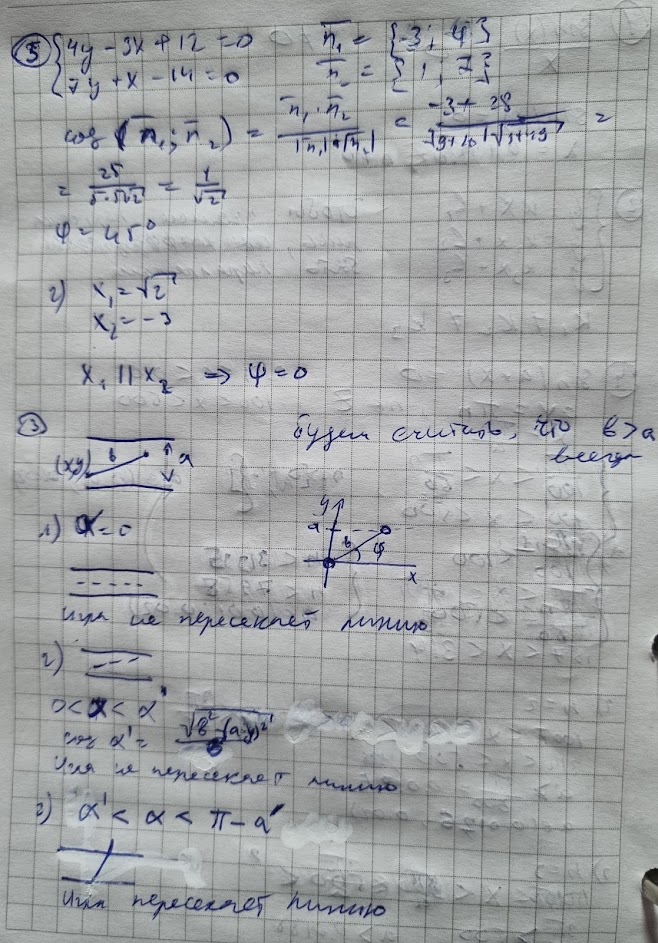 5) { 4y - 3x + 12 = 0
7y + x - 14 = 0
n̅₁ = {-3; 4}
n̅ = {1; 7}
cos (n̅₁; n̅₂) = n̅₁ · n̅₂ / |n̅₁|·|n̅₂| = -3 + 28 / √9+16 · √1+49 =
= 25 / 5·5√2 = 1/√2
φ = 45°
2) x₁ = √2
x₂ = -3
x₁ || x₂ ⇒ φ = 0
3
будем считать, что b > a
всегда
(xy) b a
1) α = 0
y a b φ x
Игла не пересекает линию
2)
0 < α < α'
cos α' = √b²-(a-y)² / b
Игла не пересекает линию
3) α' < α < π - α'
Игла пересекает линию